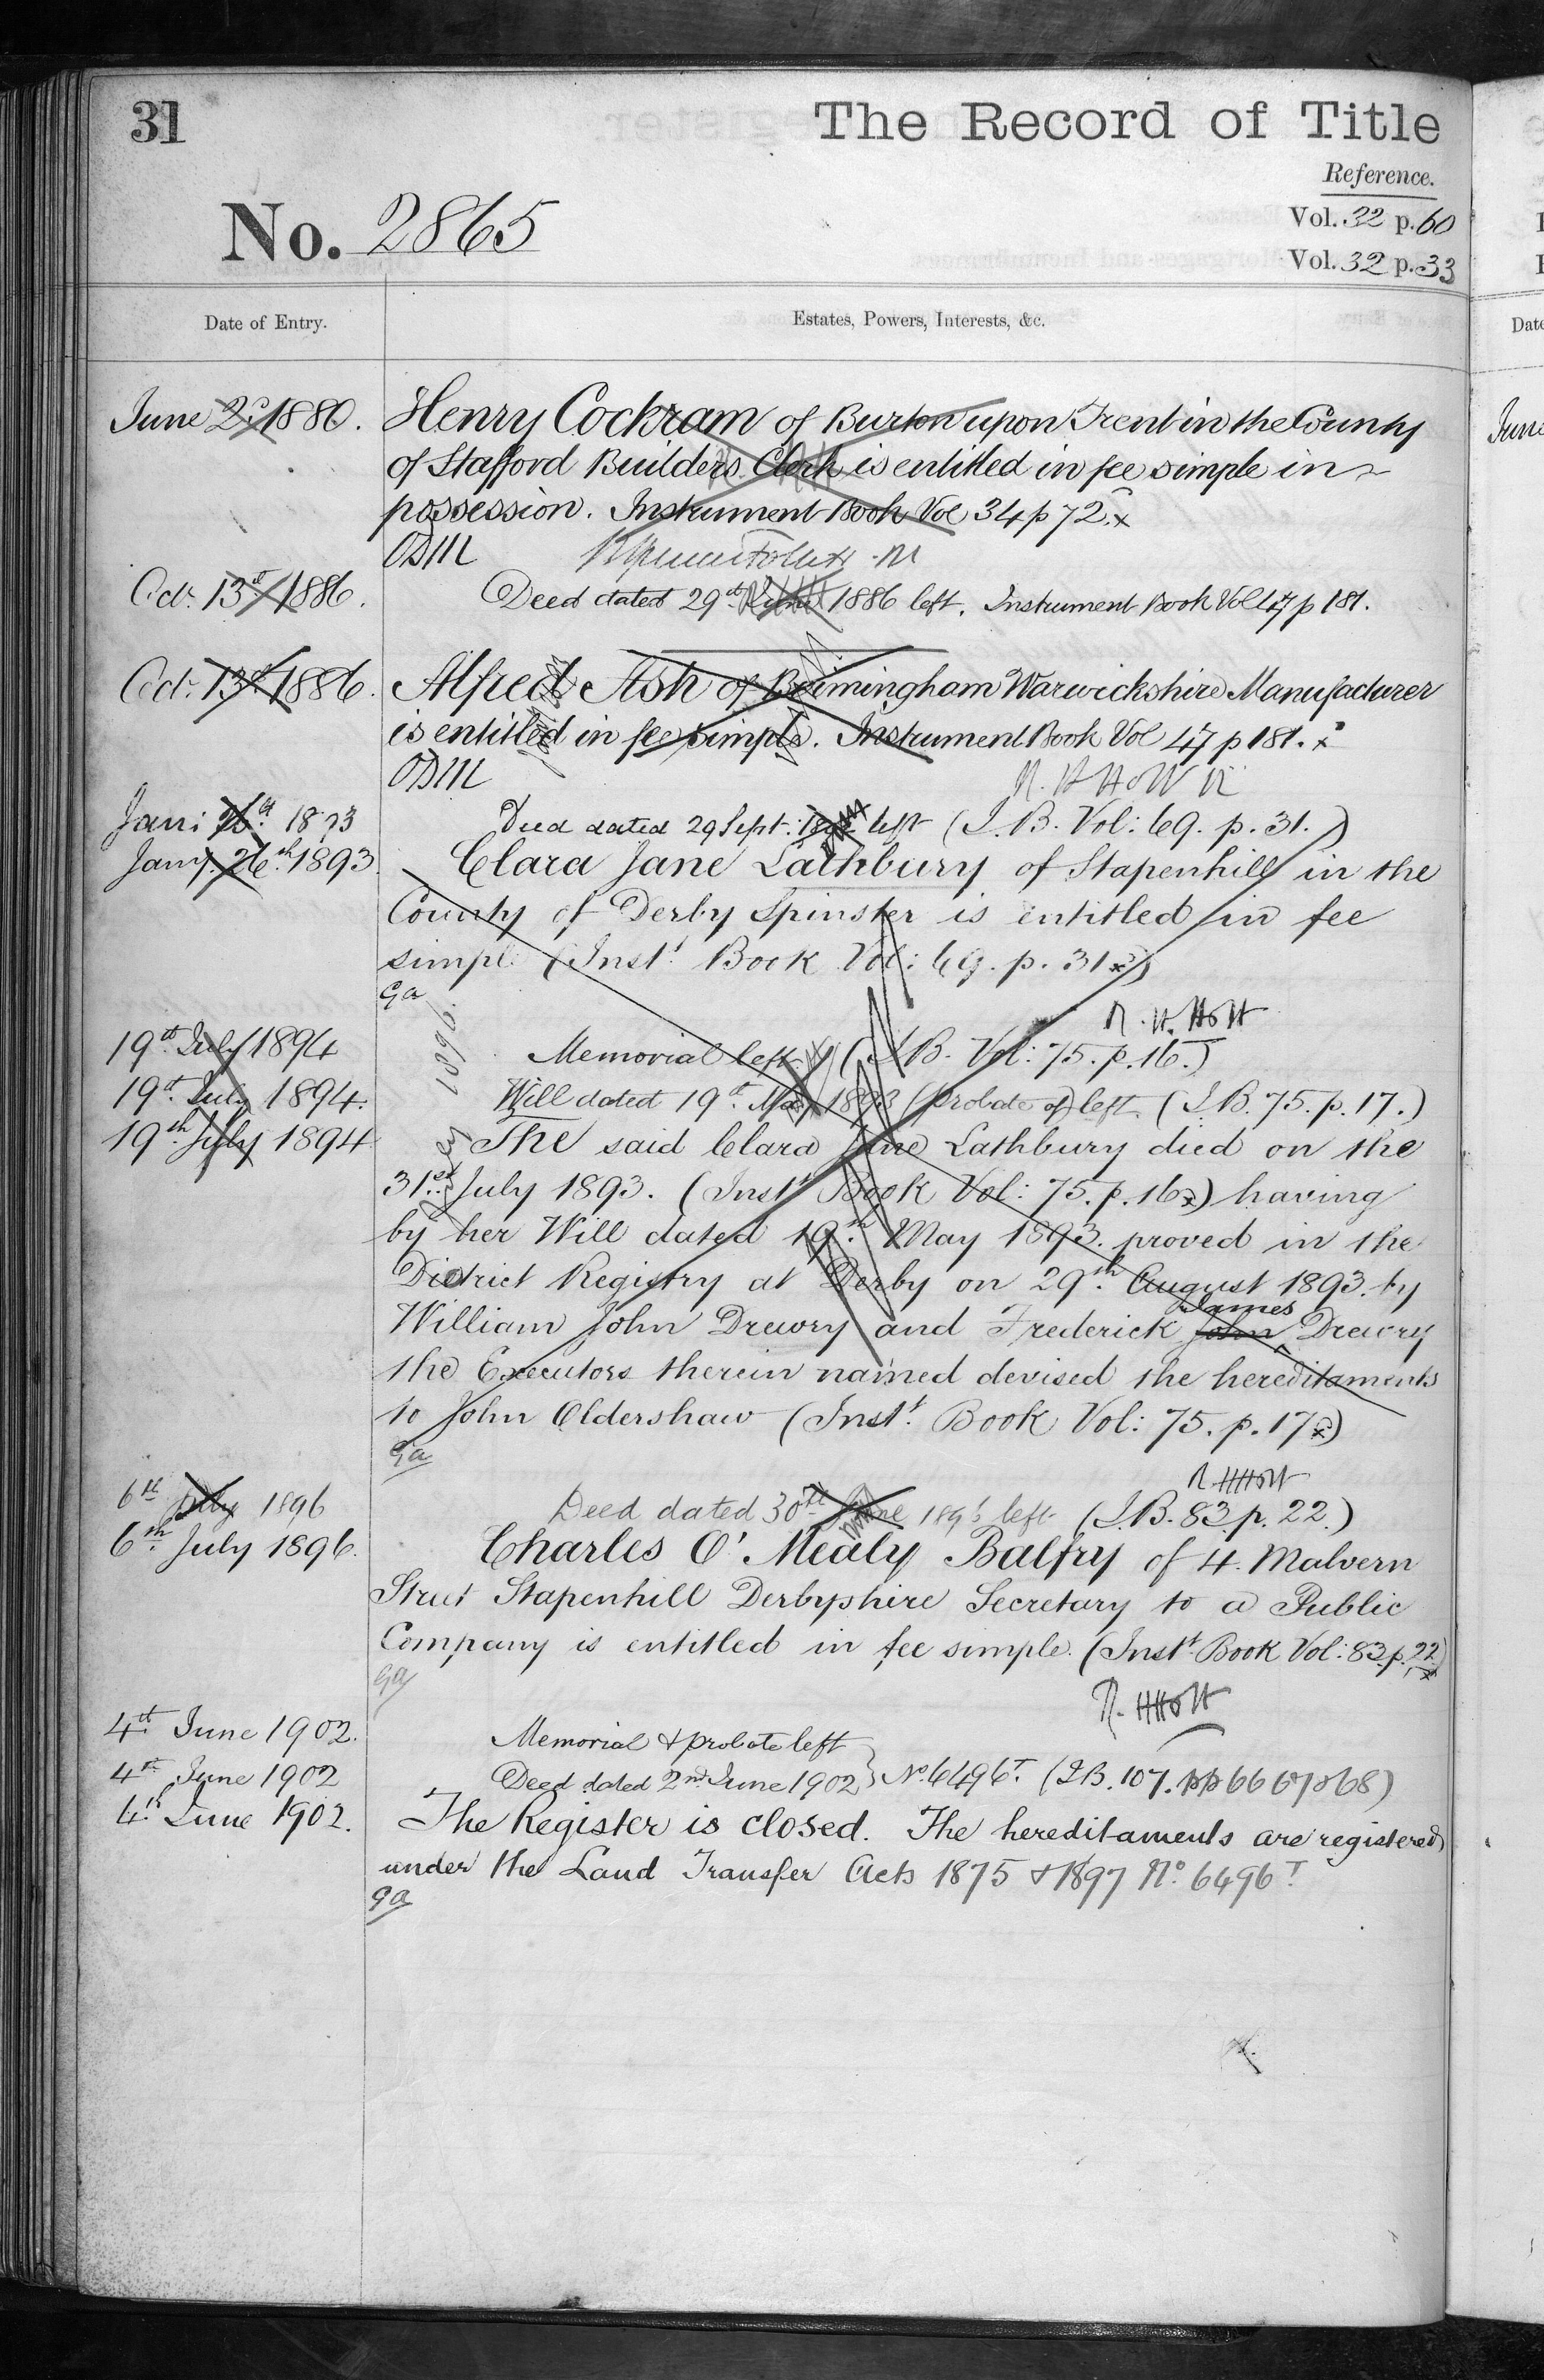 31
The Record of Title
Reference.
No. 2865
Vol. 32 p. 60
Vol. 32 p. 33
Date of Entry.
Estates, Powers, Interests, &c.
June 2d 1880. Henry Cockram of Burton upon Trent in the County
of Stafford Builders Clerk is entitled in fee simple in
possession. Instrument Book Vol 34 p 72.x
ODM
Oct. 13th 1886. Deed dated 29th June 1886 left. Instrument Book Vol 47 p 181.
Oct. 13th 1886. Alfred Ash of Birmingham Warwickshire Manufacturer
is entitled in fee simple. Instrument Book Vol 47 p 181. x
ODM
Jan: 1893 Deed dated 29 Sept: left (I.B. Vol: 69. p. 31.)
Jany. 26th 1893 Clara Jane Lathbury of Stapenhill in the
County of Derby Spinster is entitled in fee
simple (Inst.t Book Vol: 69. p. 31 x)
ga
R. H. Holt
19th July 1894 Memorial left (I.B. Vol: 75. p. 16.)
19th July 1894. Will dated 19th May 1893 (probate of) left. (I.B. 75. p. 17.)
19th July 1894 The said Clara Jane Lathbury died on the
31st July 1893. (Inst.t Book Vol: 75. p. 16 x) having
by her Will dated 19th May 1893. proved in the
District Registry at Derby on 29th August 1893. by
William John Drewry and Frederick John James Drewry
the Executors therein named devised the hereditaments
to John Oldershaw (Inst.t Book Vol: 75. p. 17 x)
ga
R HHolt
6th July 1896 Deed dated 30th June 1896 left (I.B. 83. p. 22.)
6th July 1896. Charles O'Mealy Balfry of 4. Malvern
Street Stapenhill Derbyshire Secretary to a Public
Company is entitled in fee simple. (Inst.t Book Vol: 83. p. 22 x)
ga
R. HHolt
4th June 1902. Memorial & probate left
4th June 1902 Deed dated 2nd June 1902 } No. 6496T. (I.B. 107. pp 66 67 & 68)
4th June 1902. The Register is closed. The hereditaments are registered
under the Land Transfer Acts 1875 & 1897 No. 6496T
ga